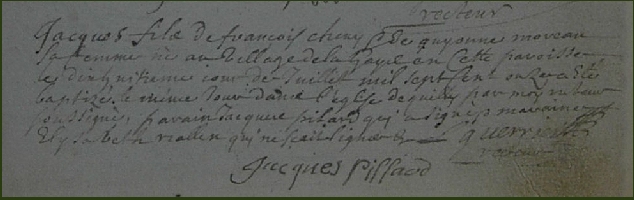 recteur
Jacques fils de francois cheny et de guyonne moreau
sa femme né au village de la en cette paroisse
le dixhuitieme jour de Juillet mil sept cent onze a esté
baptizé le même Jour dans l'eglise de par moy recteur
soussigné, parain Jacques pilard qui a signé maraine
Elysabeth qui ne scait signer
guerri
recteur
Jacques Pillard